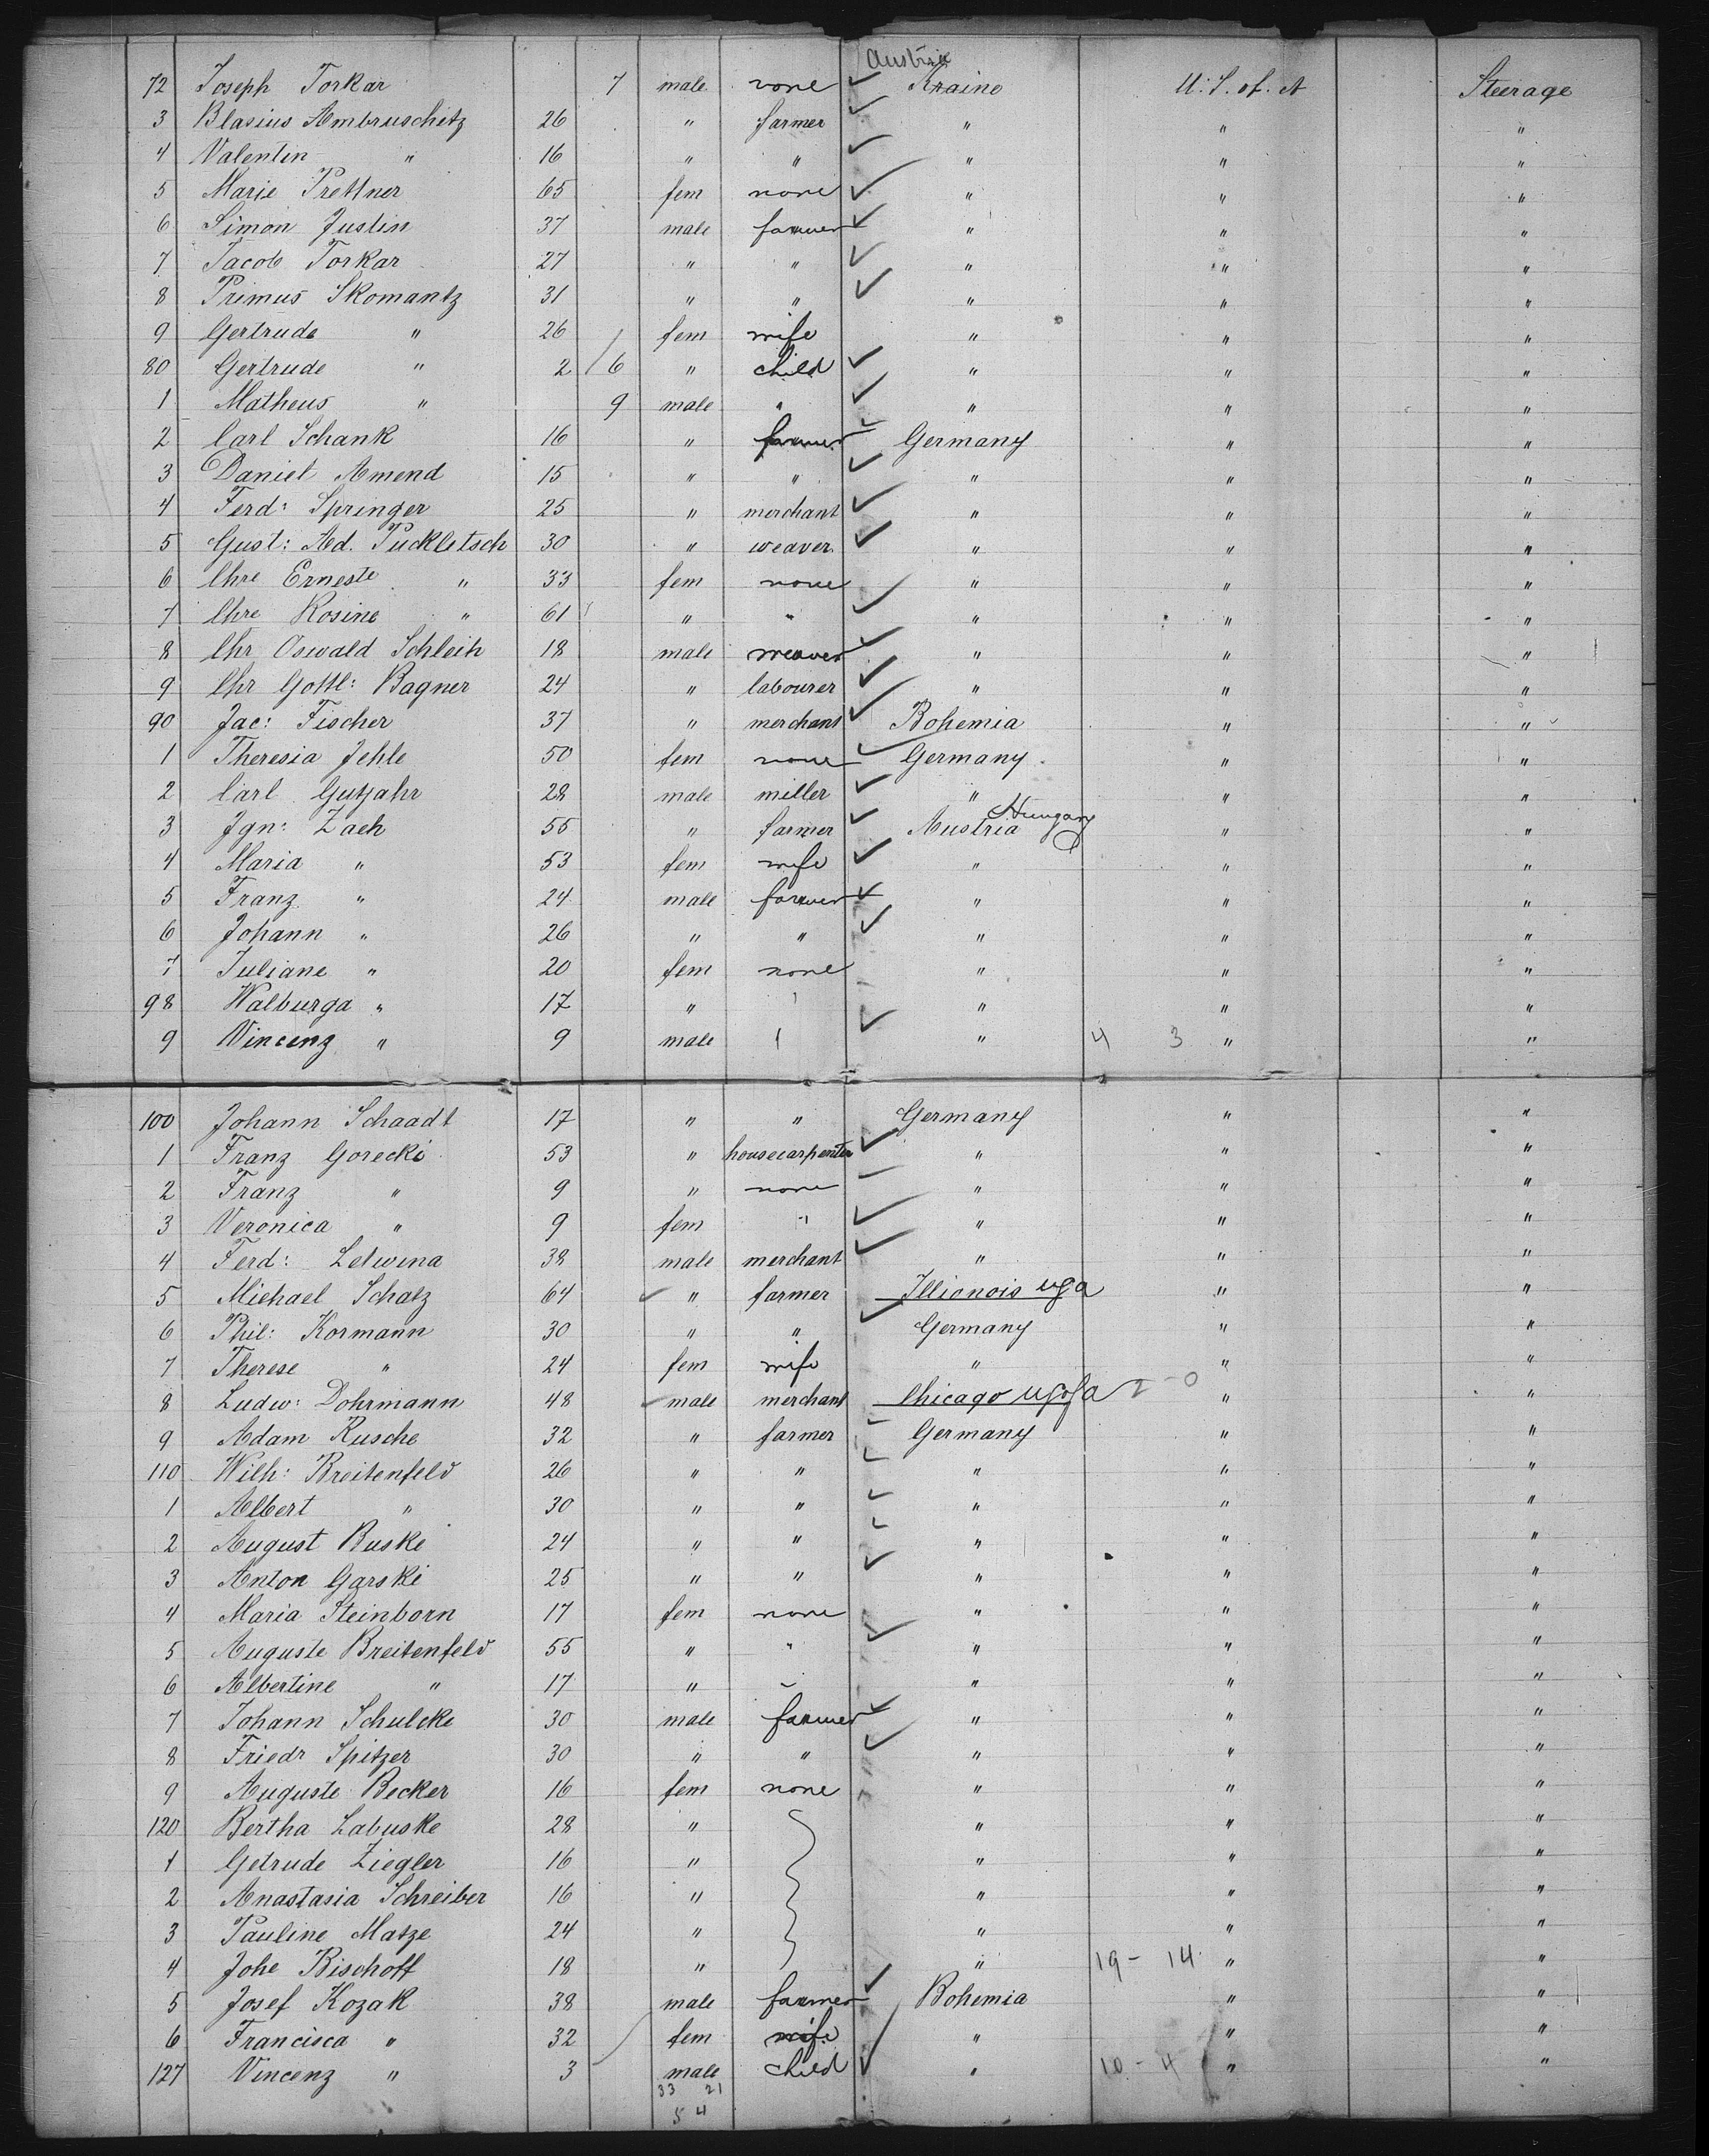 Austria
72 Joseph Torkar 7 male none Kraine U. S. of. A Steerage
3 Blasius Ambruschitz 26 " farmer " " "
4 Valentin " 16 " " " " "
5 Marie Prettner 65 fem none " " "
6 Simon Justin 37 male farmer " " "
7 Jacob Torkar 27 " " " " "
8 Primus Skomantz 31 " " " " "
9 Gertrude " 26 fem wife " " "
80 Gertrude " 2 / 6 " child " " "
1 Matheus " 9 male " " " "
2 Carl Schank 16 " farmer Germany " "
3 Daniel Amend 15 " " " " "
4 Ferd: Springer 25 " merchant " " "
5 Gust: Ad. Puckletsch 30 " weaver " " "
6 Chre Erneste " 33 fem none " " "
7 Chre Rosine " 61 " " " " "
8 Chr Oswald Schleih 18 male weaver " " "
9 Chr Gottl: Bagner 24 " labourer " " "
90 Jac: Fischer 37 " merchant Bohemia " "
1 Theresia Jehle 50 fem none Germany " "
2 Carl Gutjahr 28 male miller " " "
3 Jgn: Zach 55 " farmer Austria Hungary " "
4 Maria " 53 fem wife " " "
5 Franz " 24 male farmer " " "
6 Johann " 26 " " " " "
7 Juliane " 20 fem none " " "
98 Walburga " 17 " " " "
9 Vincenz " 9 male " 4 3 " "
100 Johann Schaadt 17 " " Germany " "
1 Franz Gorecki 53 " housecarpenter " " "
2 Franz " 9 " none " " "
3 Veronica " 9 fem " " " "
4 Ferd: Zelwina 38 male merchant " " "
5 Michael Schatz 64 " farmer Illionois usa " "
6 Phil: Kormann 30 " " Germany " "
7 Therese " 24 fem wife " " "
8 Ludw: Dohrmann 48 male merchant Chicago usofa " "
9 Adam Rusche 32 " farmer Germany " "
110 Wilh: Breitenfeld 26 " " " " "
1 Albert " 30 " " " " "
2 August Buske 24 " " " " "
3 Anton Garski 25 " " " " "
4 Maria Steinborn 17 fem none " " "
5 Auguste Breitenfeld 55 " " " " "
6 Albertine " 17 " " " " "
7 Johann Schulcke 30 male farmer " " "
8 Friedr Spitzer 30 " " " " "
9 Auguste Becker 16 fem none " " "
120 Bertha Labuske 28 " " " "
1 Getrude Ziegler 16 " " " "
2 Anastasia Schreiber 16 " " " "
3 Pauline Matze 24 " " " "
4 Johe Bischoff 18 " " 19 - 14 " "
5 Josef Kozak 38 male farmer Bohemia " "
6 Francisca " 32 fem wife " " "
127 Vincenz " 3 male child " 10 - 4 " "
33 21
5 4